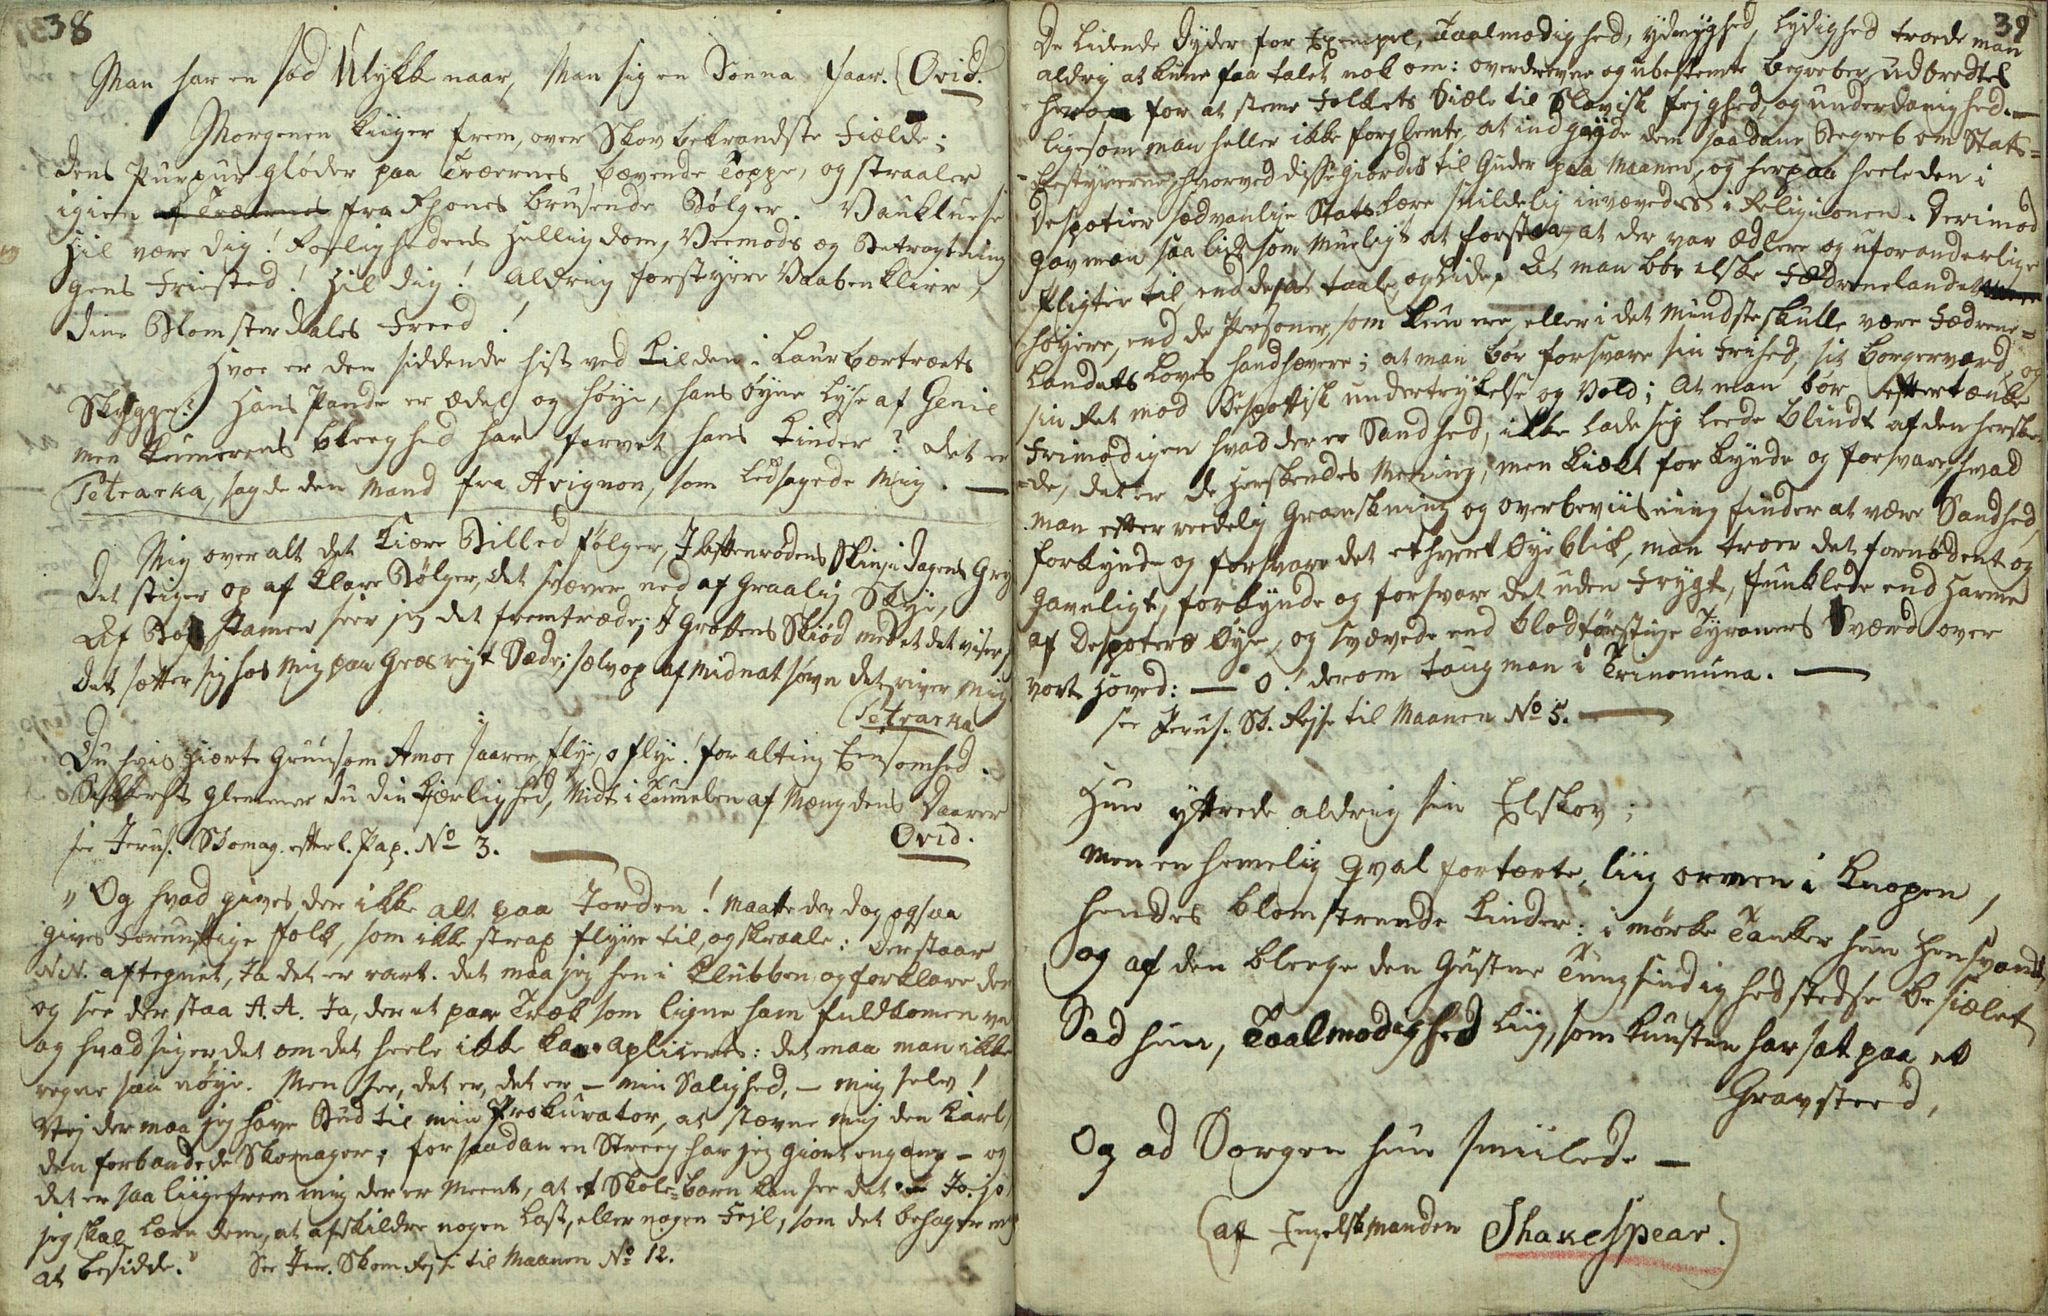 38
Man har en sød Ulykke naar, Man sig en Donna faar. (Ovid.
Morgenen kiiger frem, over Skovbekrandste Fielde;
dens Purpur gløder paa Træernes bævende Toppe, og straaler
igien af Træernes fra Rhones brusende Bølger. Baukluese
Hil være dig! Roelighedens Helligdom, Veemods og Betragtnin
gens Friested! Hil dig! Aldrig forstyrre Vaabenklirr,
dine Blomsterdales Freed!
Hvoe er den siddende hist ved Kilden i Laurbærtræets
Skygge? Hans Pande er ædel og høye, hans øyne lyse af Genie
men kumerens bleeghed har farvet hans Kinder? det er
Petrarka, sagde den Mand fra Avignon, som Ledsagede Mig. —
Mig over alt det Kiære Billed følger, I Aftenrødens Skin i Dagens Gry
Det stiger op af klare Bølger, det svæver ned af Graalig Skye,
Af Bøge Stamen seer jeg det fremtræde; I Grottens Skiød med et det viser,
Det sætter sig hos Mig paa Græsrigt Sæde; sælv op af Midnat søvn det river Mig
(Petrarka
Du hvis Hierte Grunsom Amor saarer, flye, o flye! for alting Eensomhed.
Sikkerst glemmer du din Kjærlighed, Midt i Tumelen af Mængdens Daarer
see Jerus. Skomag. efterl. Pap. No 3. — Ovid.
"Og hvad gives der ikke alt paa Jorden! Maatte der dog ogsaa
gives fornuftige folk, som ikke strax flyve til, og skraale: Der staar
N.N. aftegnet, Ja det er rart. det maa jeg hen i Klubben og forklare der
og see der staa A.A. Ja, der et paar Træk som ligne ham fuldkomen vel
og hvad siger det om det heele ikke kan apliceres: det maa man ikke
regne saa nøye. Men see, det er, det er — min Salighed, — mig selv!
Vej der maa jeg have Bud til min Prokurator, at stævne mig den Karl,
den forbandede Skomager; for saadan en Streeg har jeg giort engang — og
det er saa liigefrem mig der er Meent, at et Skole-barn kan see det — Jo. jo
jeg skal lære dem, at afskildre nogen Last, eller nogen Fejl, som det behager mig
at besidde." See Jer. Skom. Rejse til Maanen No 12.
39
De Lidende Dyder for Exempel, Taalmodighed, Ydmyghed, Lydighed troede man
aldrig at kune faa talet nok om: overdrevne og ubestemte begreber udbredtes
herom for at steme Folkets Siæle til Slavisk fejghed, og underdanighed. —
ligesom man heller ikke forglemte, at indgyde dem saadane Begreb om Stats=
bestyrerne, hvorved disse giordes til Guder paa Maanen, og herpaa heele den i
Despotier sædvanlige Statslære snildelig invævedes i Religionen. Derimod
gav man saa lidt som Mueligt at forstaa, at der var ædlere og uforanderlige
Pligter til, end de at taale, og Lide, At man bør elske Fædrenelandet
høyere, end de Personer, som kun ere, eller i det Mindste skulle være Fædrene=
Landets Loves Handhævere; at man bør forsvare sin Frihed, sit Borgerværd, og
sin Ret mod Despotisk undertrykelse og Vold; At man bør eftertænke
Frimodigen hvad der er Sandhed, ikke lade sig leede blindt af den herske
=de, det er de herskendes Mening, men kiækt forkynde og forsvare, hvad
man efter reedelig Granskning og overbeviisning finder at være Sandhed,
forkynde og forsvare det ethvert Øyeblik, man troer det fornødent og
gavnligt, forkynde og forsvare det uden Frygt, funklede end Harme
af Despoters Øye, og svævede end blodtørstige Tyraners Sværd over
vort Hoved: — O! derom taug man i Trinonuna. —
see Jerus. Sk. Rejse til Maanen No 5. —
Hun yttrede aldrig sin Elskov;
Men en hemelig qval fortærte, liig ormen i Knopen,
hendes blomstrende Kinder: i mørke Tanker hun hensvandt,
og af den bleege den Gustne Tungsindighed stedse besiælet
Sad hun, Taalmodighed liig, som kunsten har sat paa et
Gravsteed,
Og ad Sorgen hun smiilede —
(af Engelskmanden Shakespear.)